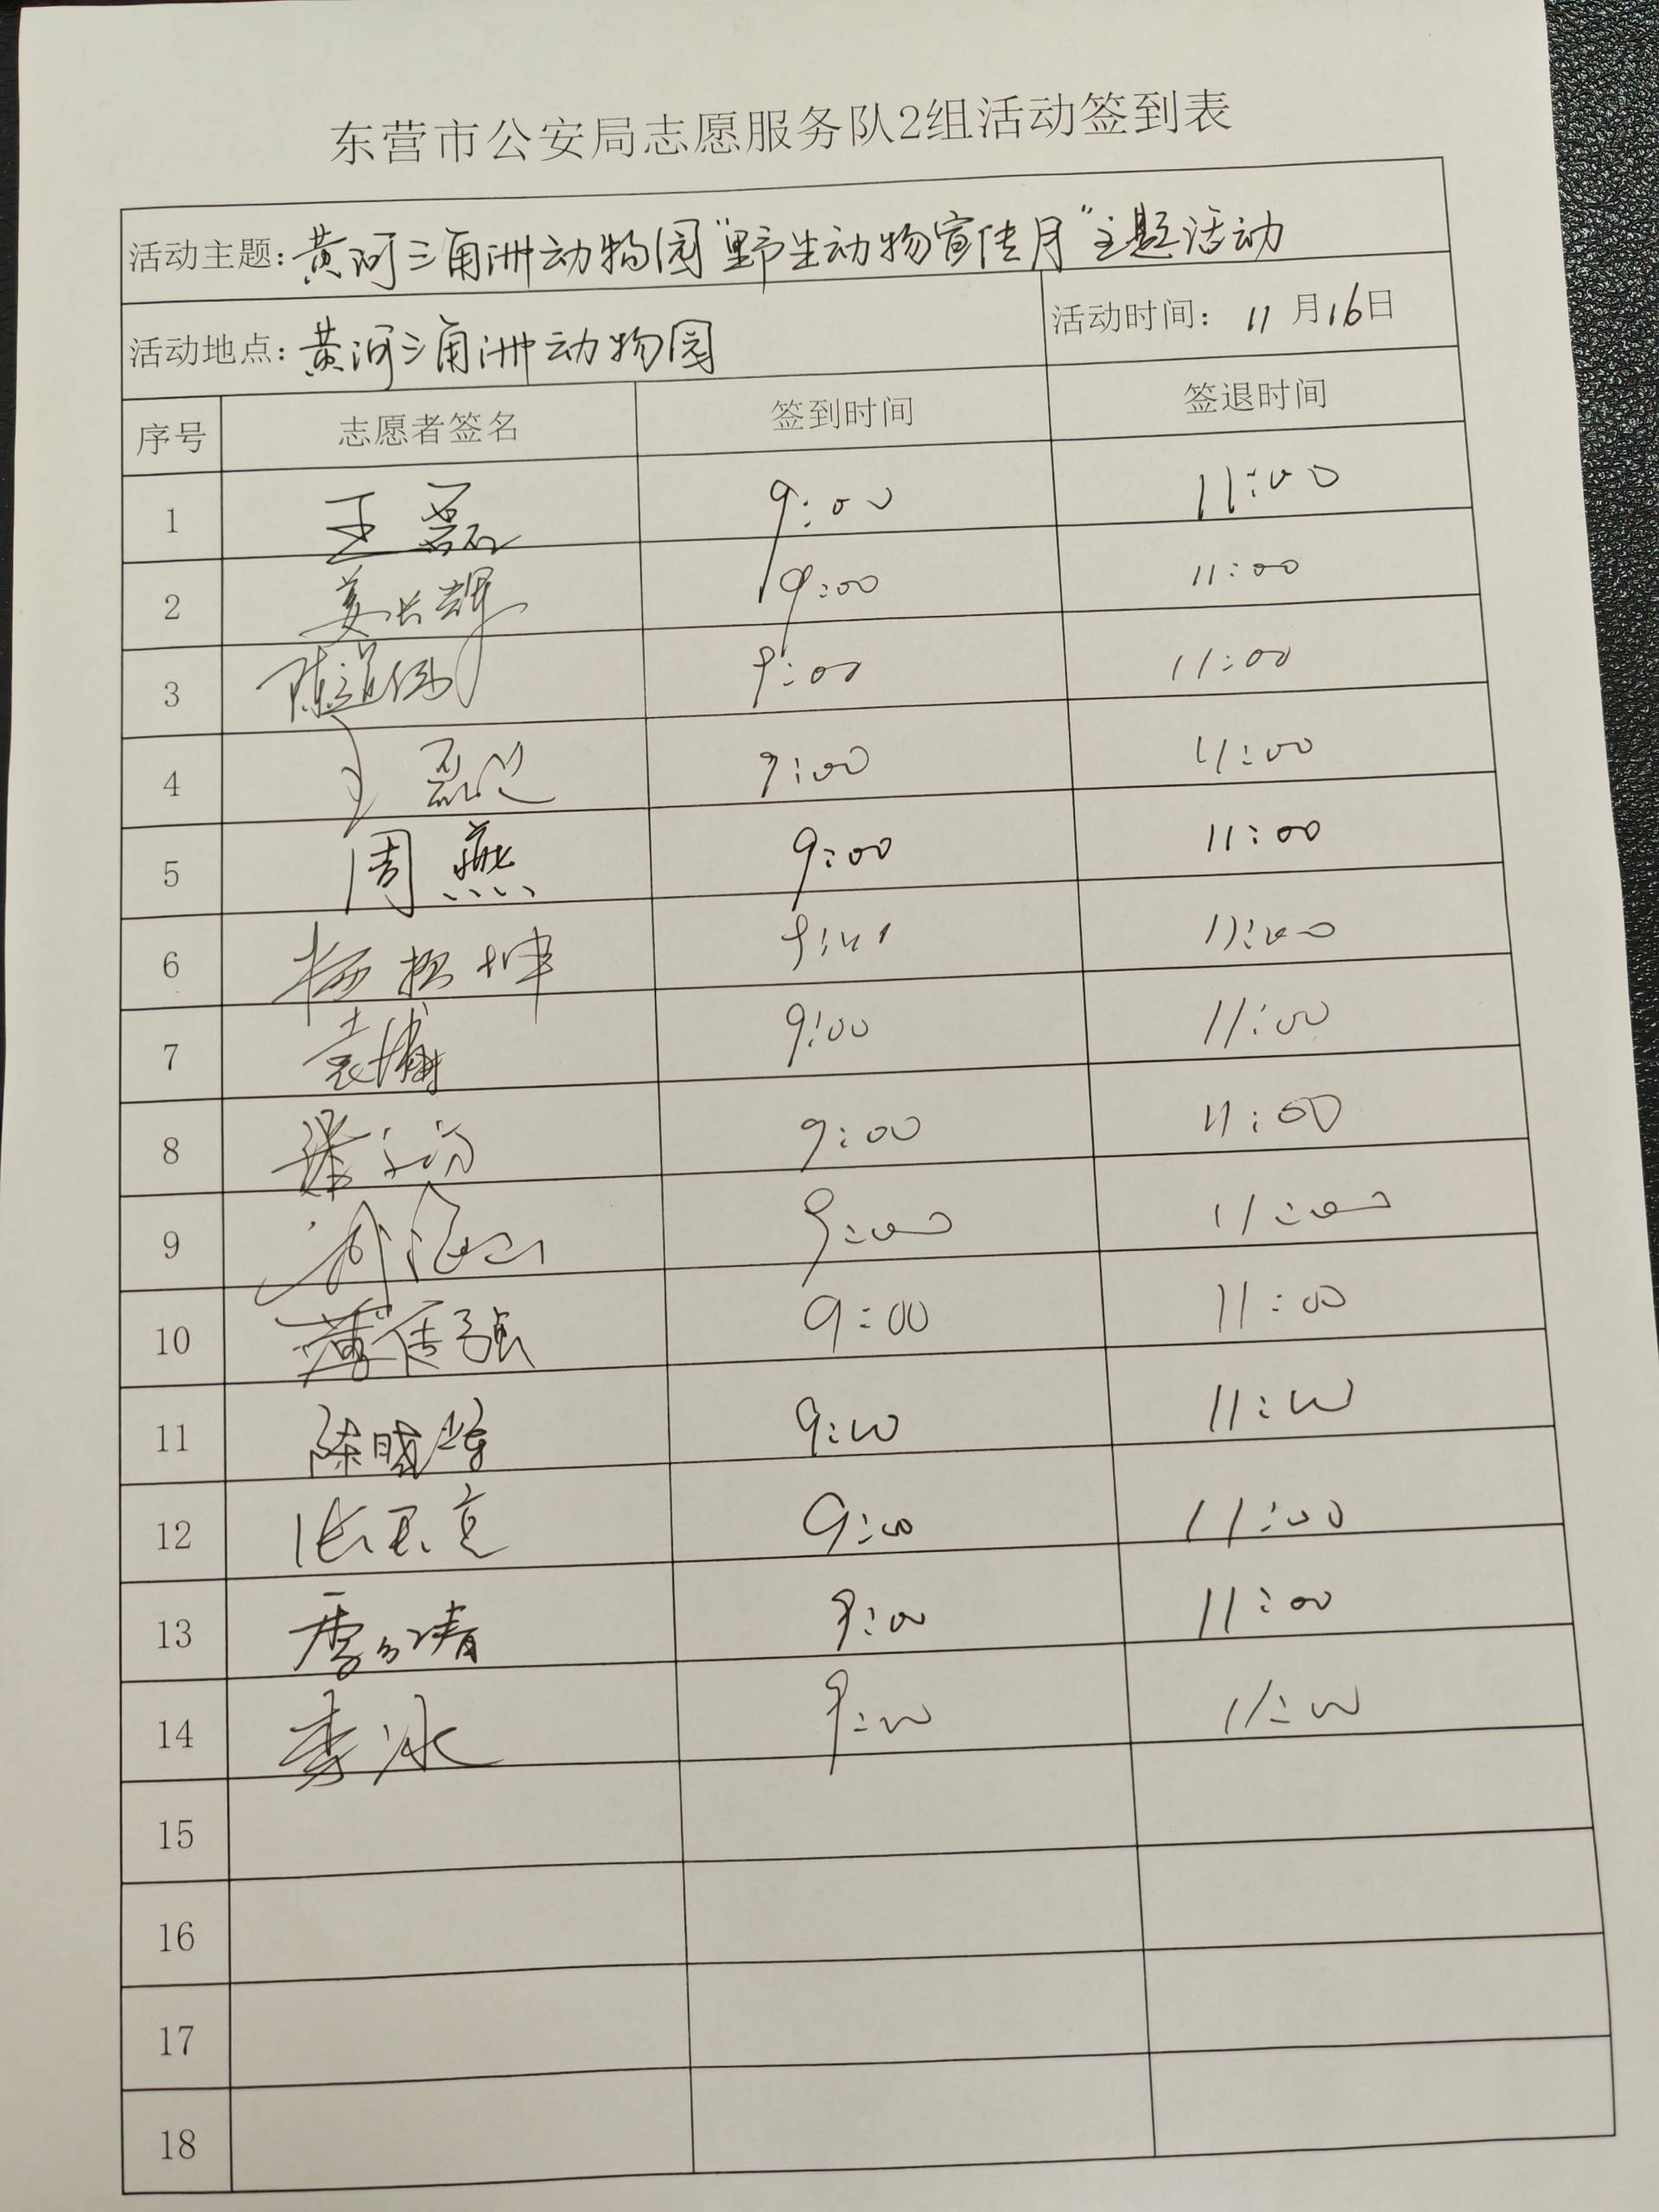 东营市公安局志愿服务队2组活动签到表
活动主题：黄河三角洲动物园"野生动物宣传月"主题活动
活动地点：黄河三角洲动物园 活动时间：11月16日
序号 志愿者签名 签到时间 签退时间
1 王磊 9:00 11:00
2 姜长辉 9:00 11:00
3 陈道伟 9:00 11:00
4 9:00 11:00
5 周燕 9:00 11:00
6 杨松坤 9:00 11:00
7 袁博 9:00 11:00
8 梁 9:00 11:00
9 刘 9:00 11:00
10 薄伟强 9:00 11:00
11 陈晓 9:00 11:00
12 张玉亮 9:00 11:00
13 季 9:00 11:00
14 李冰 9:00 11:00
15
16
17
18